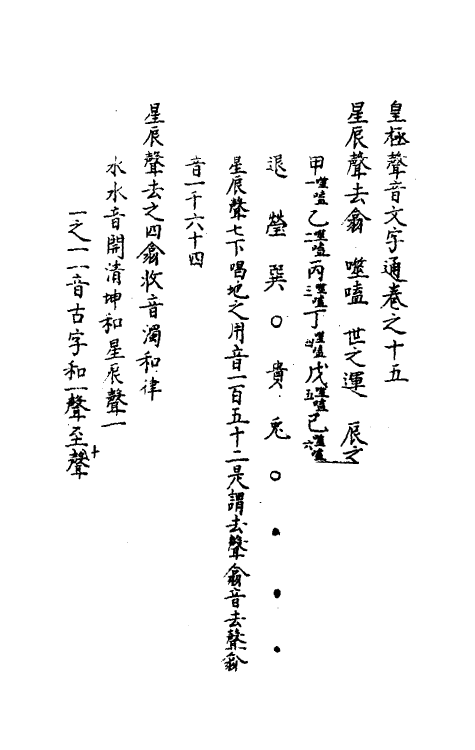 皇極聲音文字通卷之十五
星辰聲去翕 噬嗑 世之運 辰之
甲一噬嗑乙二噬嗑丙三噬嗑丁四噬嗑戊五噬嗑己六噬嗑
退瑩巽○貴兎○●●●
星辰聲七下唱地之用音一百五十二是謂去聲翕音去聲翕
音一千六十四
星辰聲去之四翕收音濁和律
水水音開清坤和星辰聲一
一之一一音古字和一聲至十聲